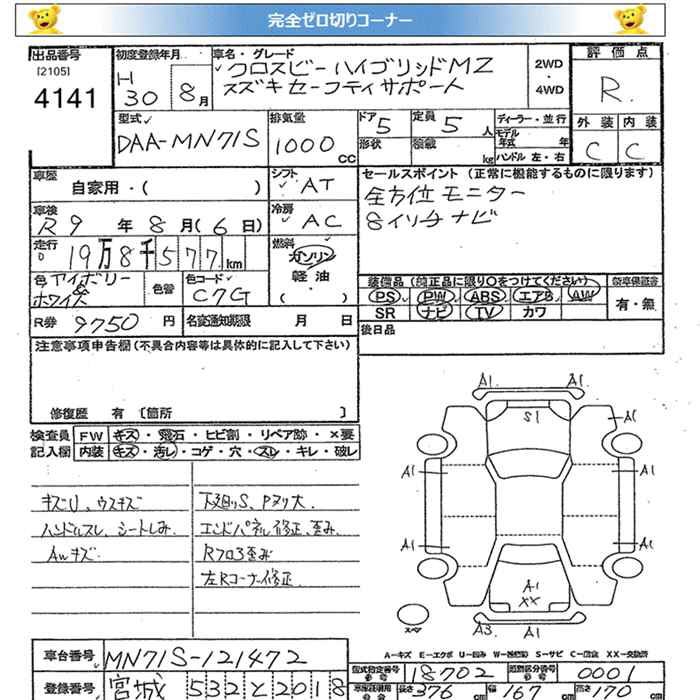 完全ゼロ切りコーナー
出品番号
[2105]
4141
初度登録年月
H 30 年 8 月
車名・グレード
クロスビー ハイブリッドMZ
スズキ セーフティサポート
2WD
・
4WD
評価点
R
外装 内装
C C
型式
DAA-MN71S
排気量
1000 CC
ドア 5
定員 5 人
形状
積載 kg
ディーラー・並行
モデル年式 年
ハンドル 左・右
車歴
自家用・( )
シフト
AT
車検
R 9 年 8 月 ( 6 日)
冷房
AC
走行
19万8千577km
燃料
ガソリン
軽油
( )
色 アイボリー & ホワイト
色替
色コード
C7G
R券 9750 円
名変通知期限 月 日
セールスポイント(正常に機能するものに限ります)
全方位モニター
8インチナビ
装備品(純正品に限り○をつけてください)
PS PW ABS エアB AW
SR ナビ TV カワ
新車保証書
有・無
後日品
注意事項申告欄(不具合内容等は具体的に記入して下さい)
修復歴 有 [箇所 ]
検査員
記入欄
FW キズ・飛石・ヒビ割・リペア跡・×要
内装 キズ・汚レ・コゲ・穴・スレ・キレ・破レ
キズU、ウスキズ
ハンドルスレ、シートしみ
AWキズ
下廻りS、Pヌリ大
エンドパネル修正、歪み
Rフロア歪み
左Rコーナー修正
A1 A1
S1
A1
A1 A1
A1 A1
A1
XX
A3 A1
スペア
A-キズ E-エクボ U-凹み W-補修跡 S-サビ C-腐食 XX-交換済
車台番号 MN71S-121472
登録番号 宮城 532 と 2018
型式指定番号 18702
類別区分番号 0001
長さ 376 幅 167 高さ 170